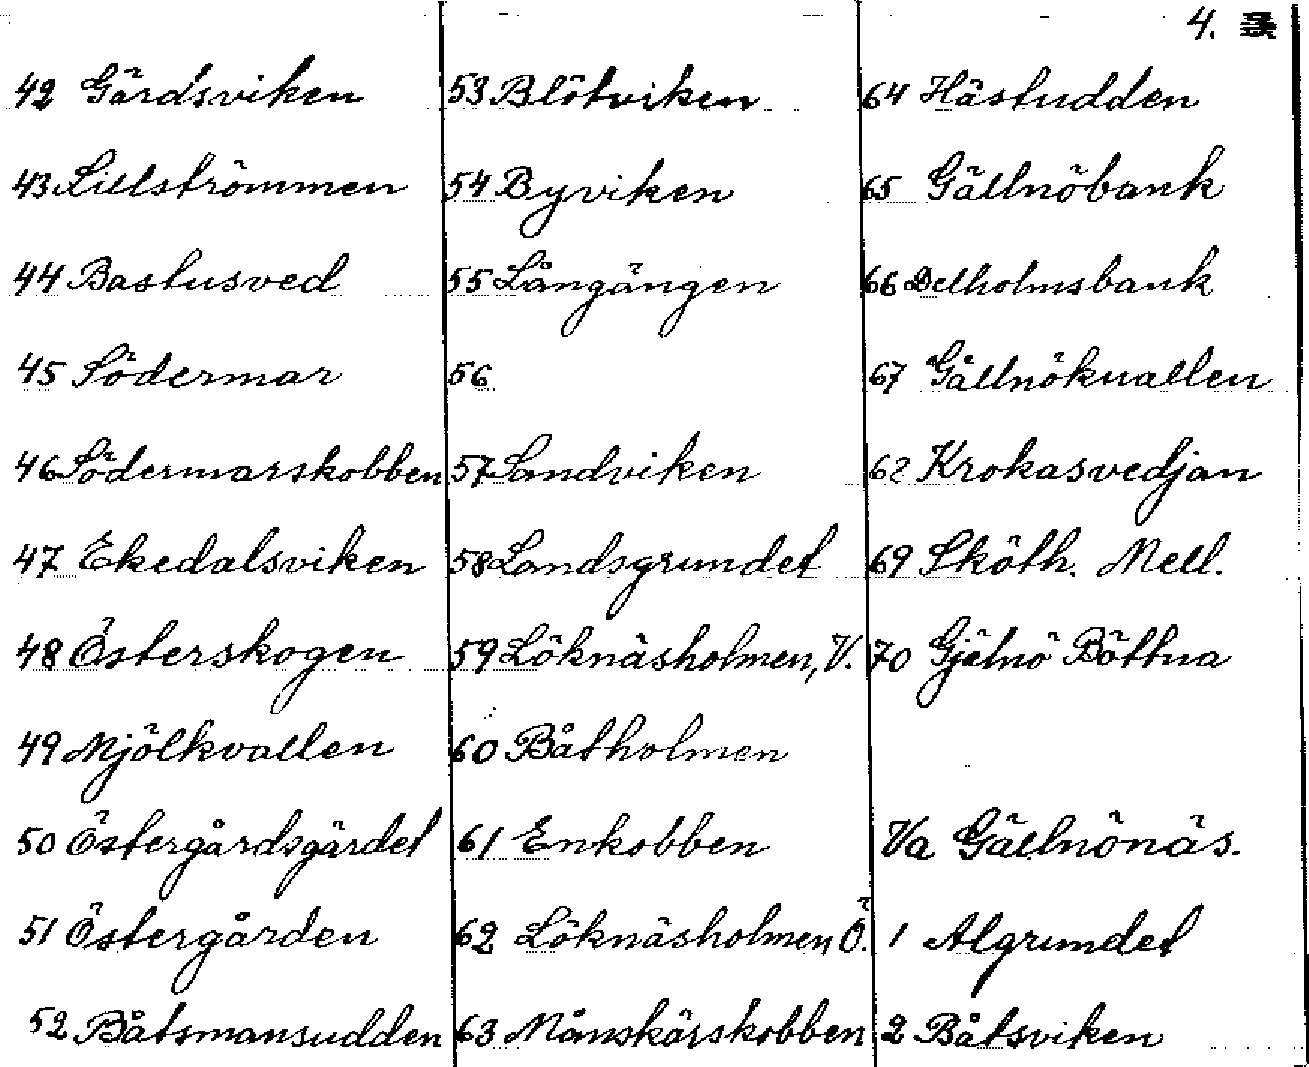 4.
42 Gärdsviken
43 Lillströmmen
44 Bastusved
45 Södermar
46 Södermarskobben
47 Ekedalsviken
48 Österskogen
49 Mjölkvallen
50 Östergårdsgärdet
51 Östergården
52 Båtsmansudden
53 Blötviken
54 Byviken
55 Långängen
56
57 Sandviken
58 Landsgrundet
59 Löknäsholmen, V.
60 Båtholmen
61 Enkobben
62 Löknäsholmen Ö.
63 Månskärskobben
64 Hästudden
65 Gällnöbank
66 Delholmsbank
67 Gällnökvallen
62 Krokasvedjan
69 Sköth. Mell.
70 Gjälnö Böttna
Va Gällnönäs.
1 Algrundet
2 Båtsviken